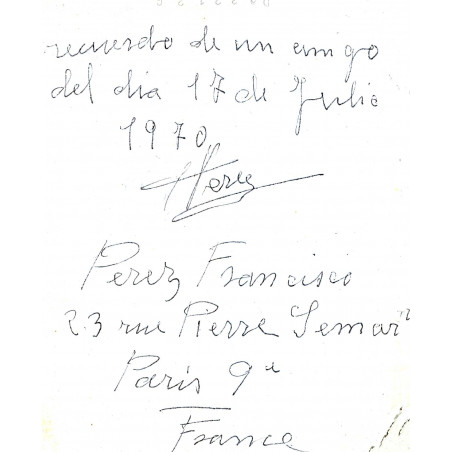 recuerdo de un amigo
del dia 17 de Julio
1970
Perez
Perez Francisco
23 rue Pierre Semar
Paris 9e
France